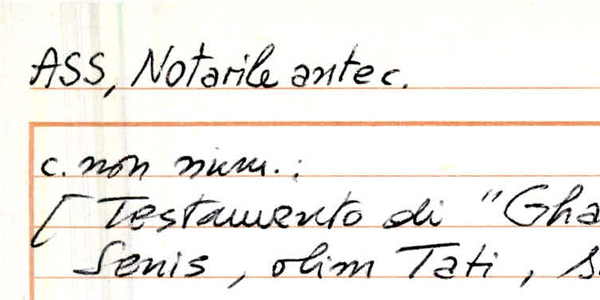 ASS, Notarile antec.
c. non num.:
[Testamento di "Gha
Senis, olim Tati, s.